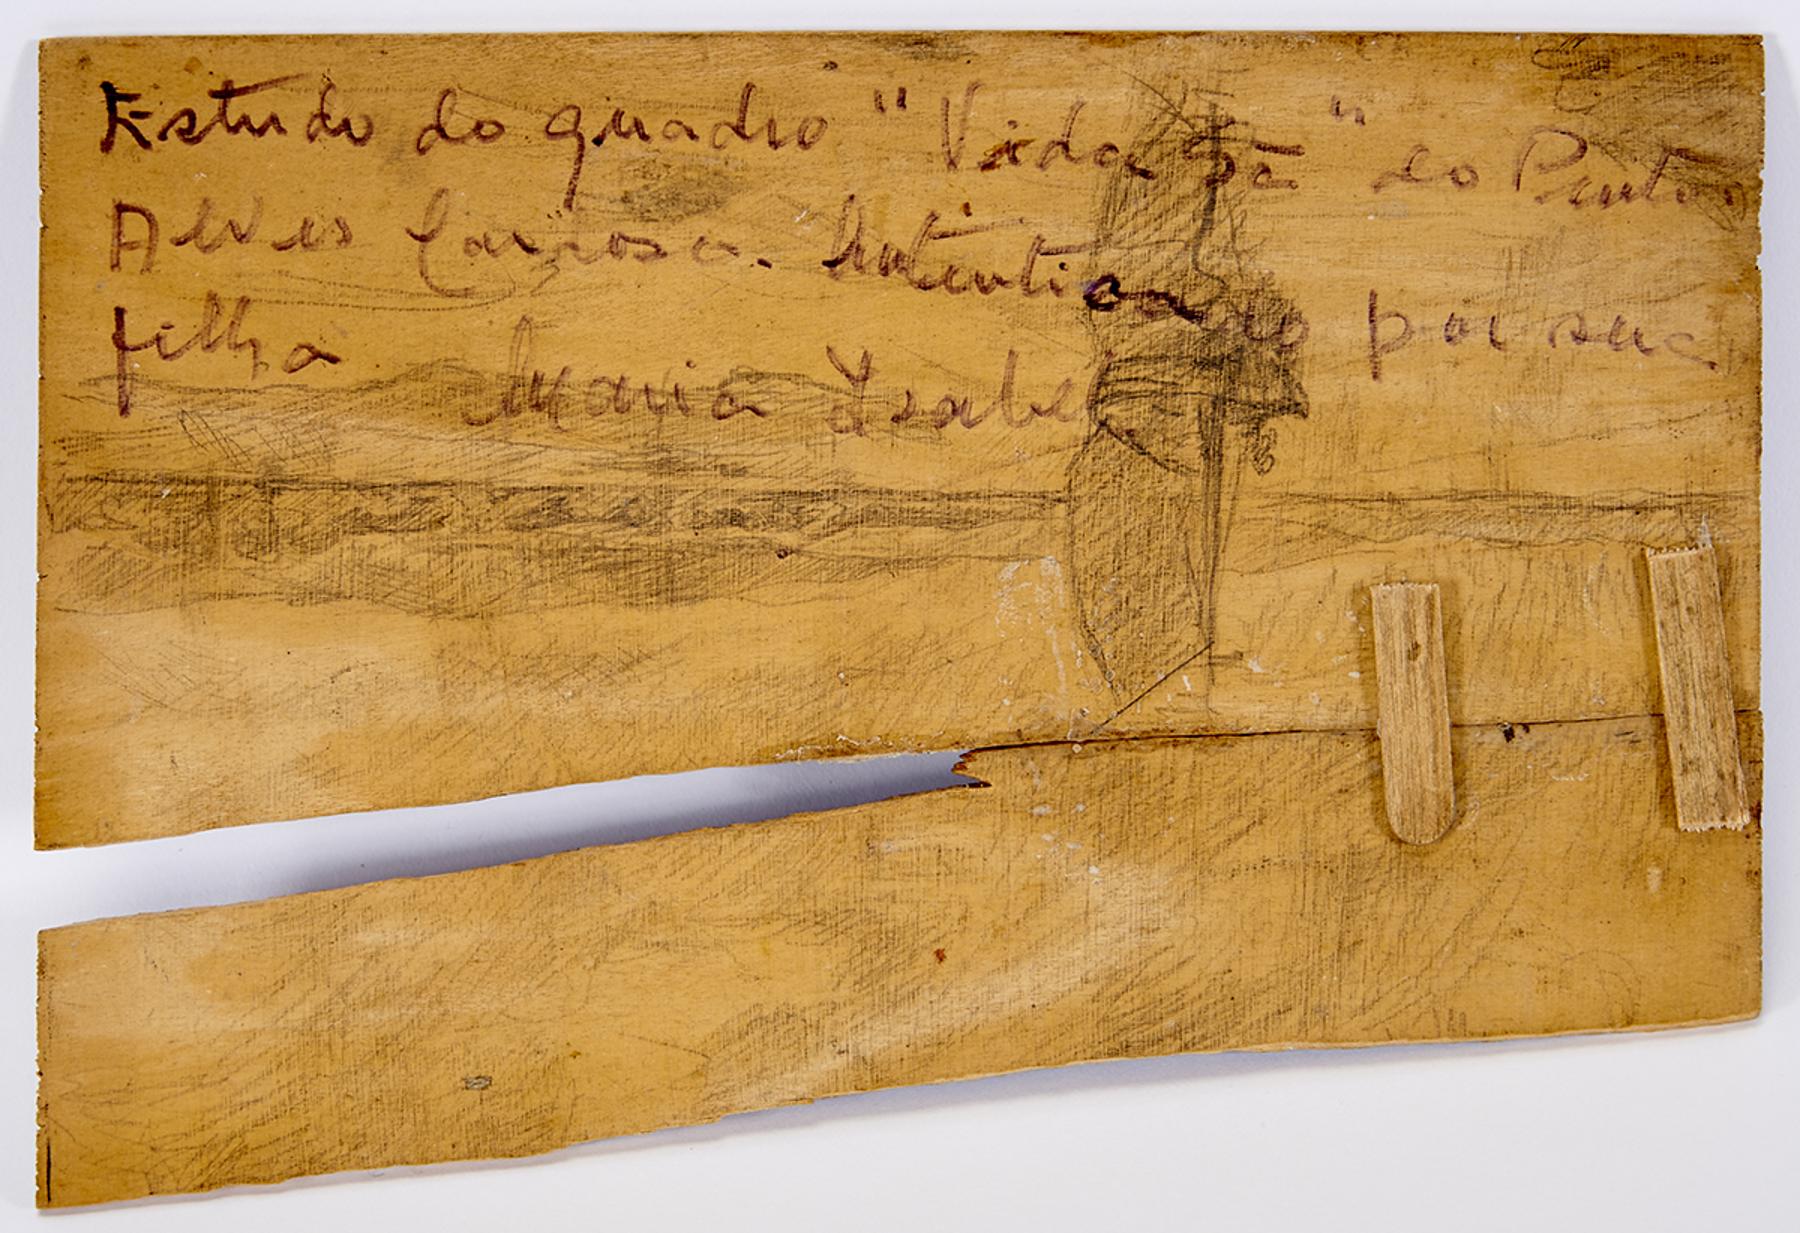 Estudo do quadro "Vida Sã" do Pintor
Alves Cardoso. Autenticado por sua
filha Maria Izabel